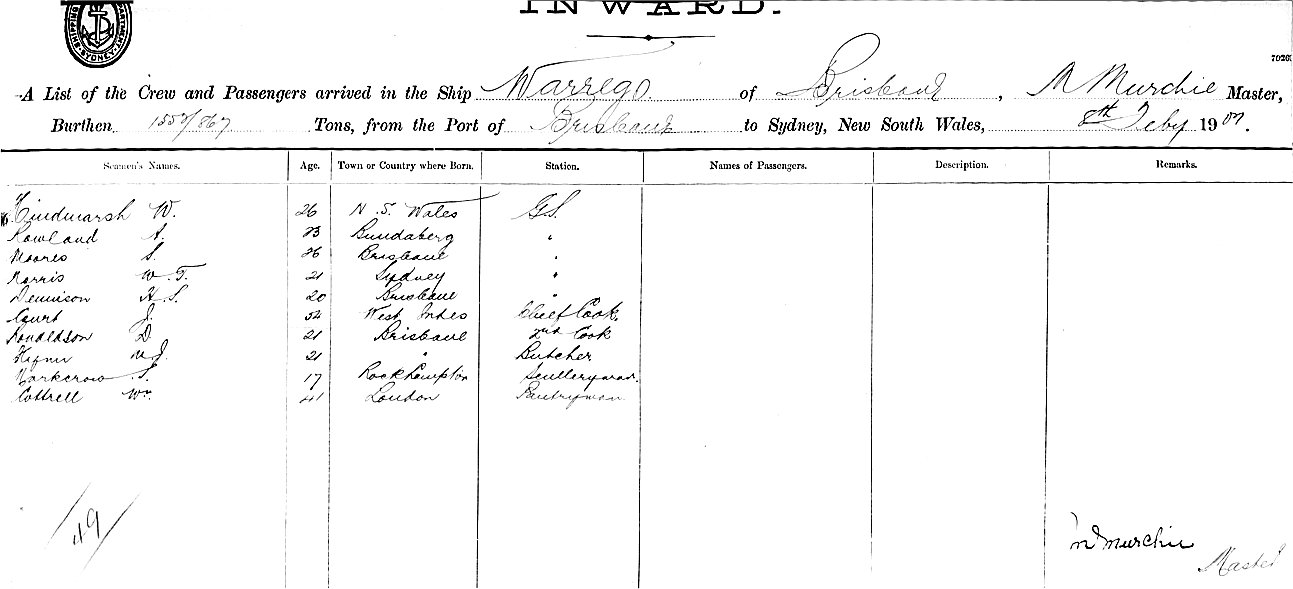 SHIPPING DEPARTMENT SYDNEY
INWARD.
A List of the Crew and Passengers arrived in the Ship Warrego of Brisbane, M Murchie Master,
Burthen 1550/867 Tons, from the Port of Brisbane to Sydney, New South Wales, 8th Feby 1907
Seamen's Names. Age. Town or Country where Born. Station. Names of Passengers. Description. Remarks.
Hindmarsh W. 26 N. S. Wales G.S.
Rowland A. 23 Bundaberg "
Moores S. 26 Brisbane "
Morris W. T. 21 Sydney "
Dennison H. S. 20 Brisbane "
Court J. 52 West Indes Chief Cook
Donaldson D. 21 Brisbane 2nd Cook
21 " Butcher
S. 17 Rockhampton Sculleryman
Cottrell Wm. 41 London Pantryman
49
M Murchie
Master